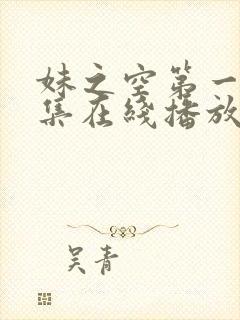 妹之空第一
集在綫播放
吴青